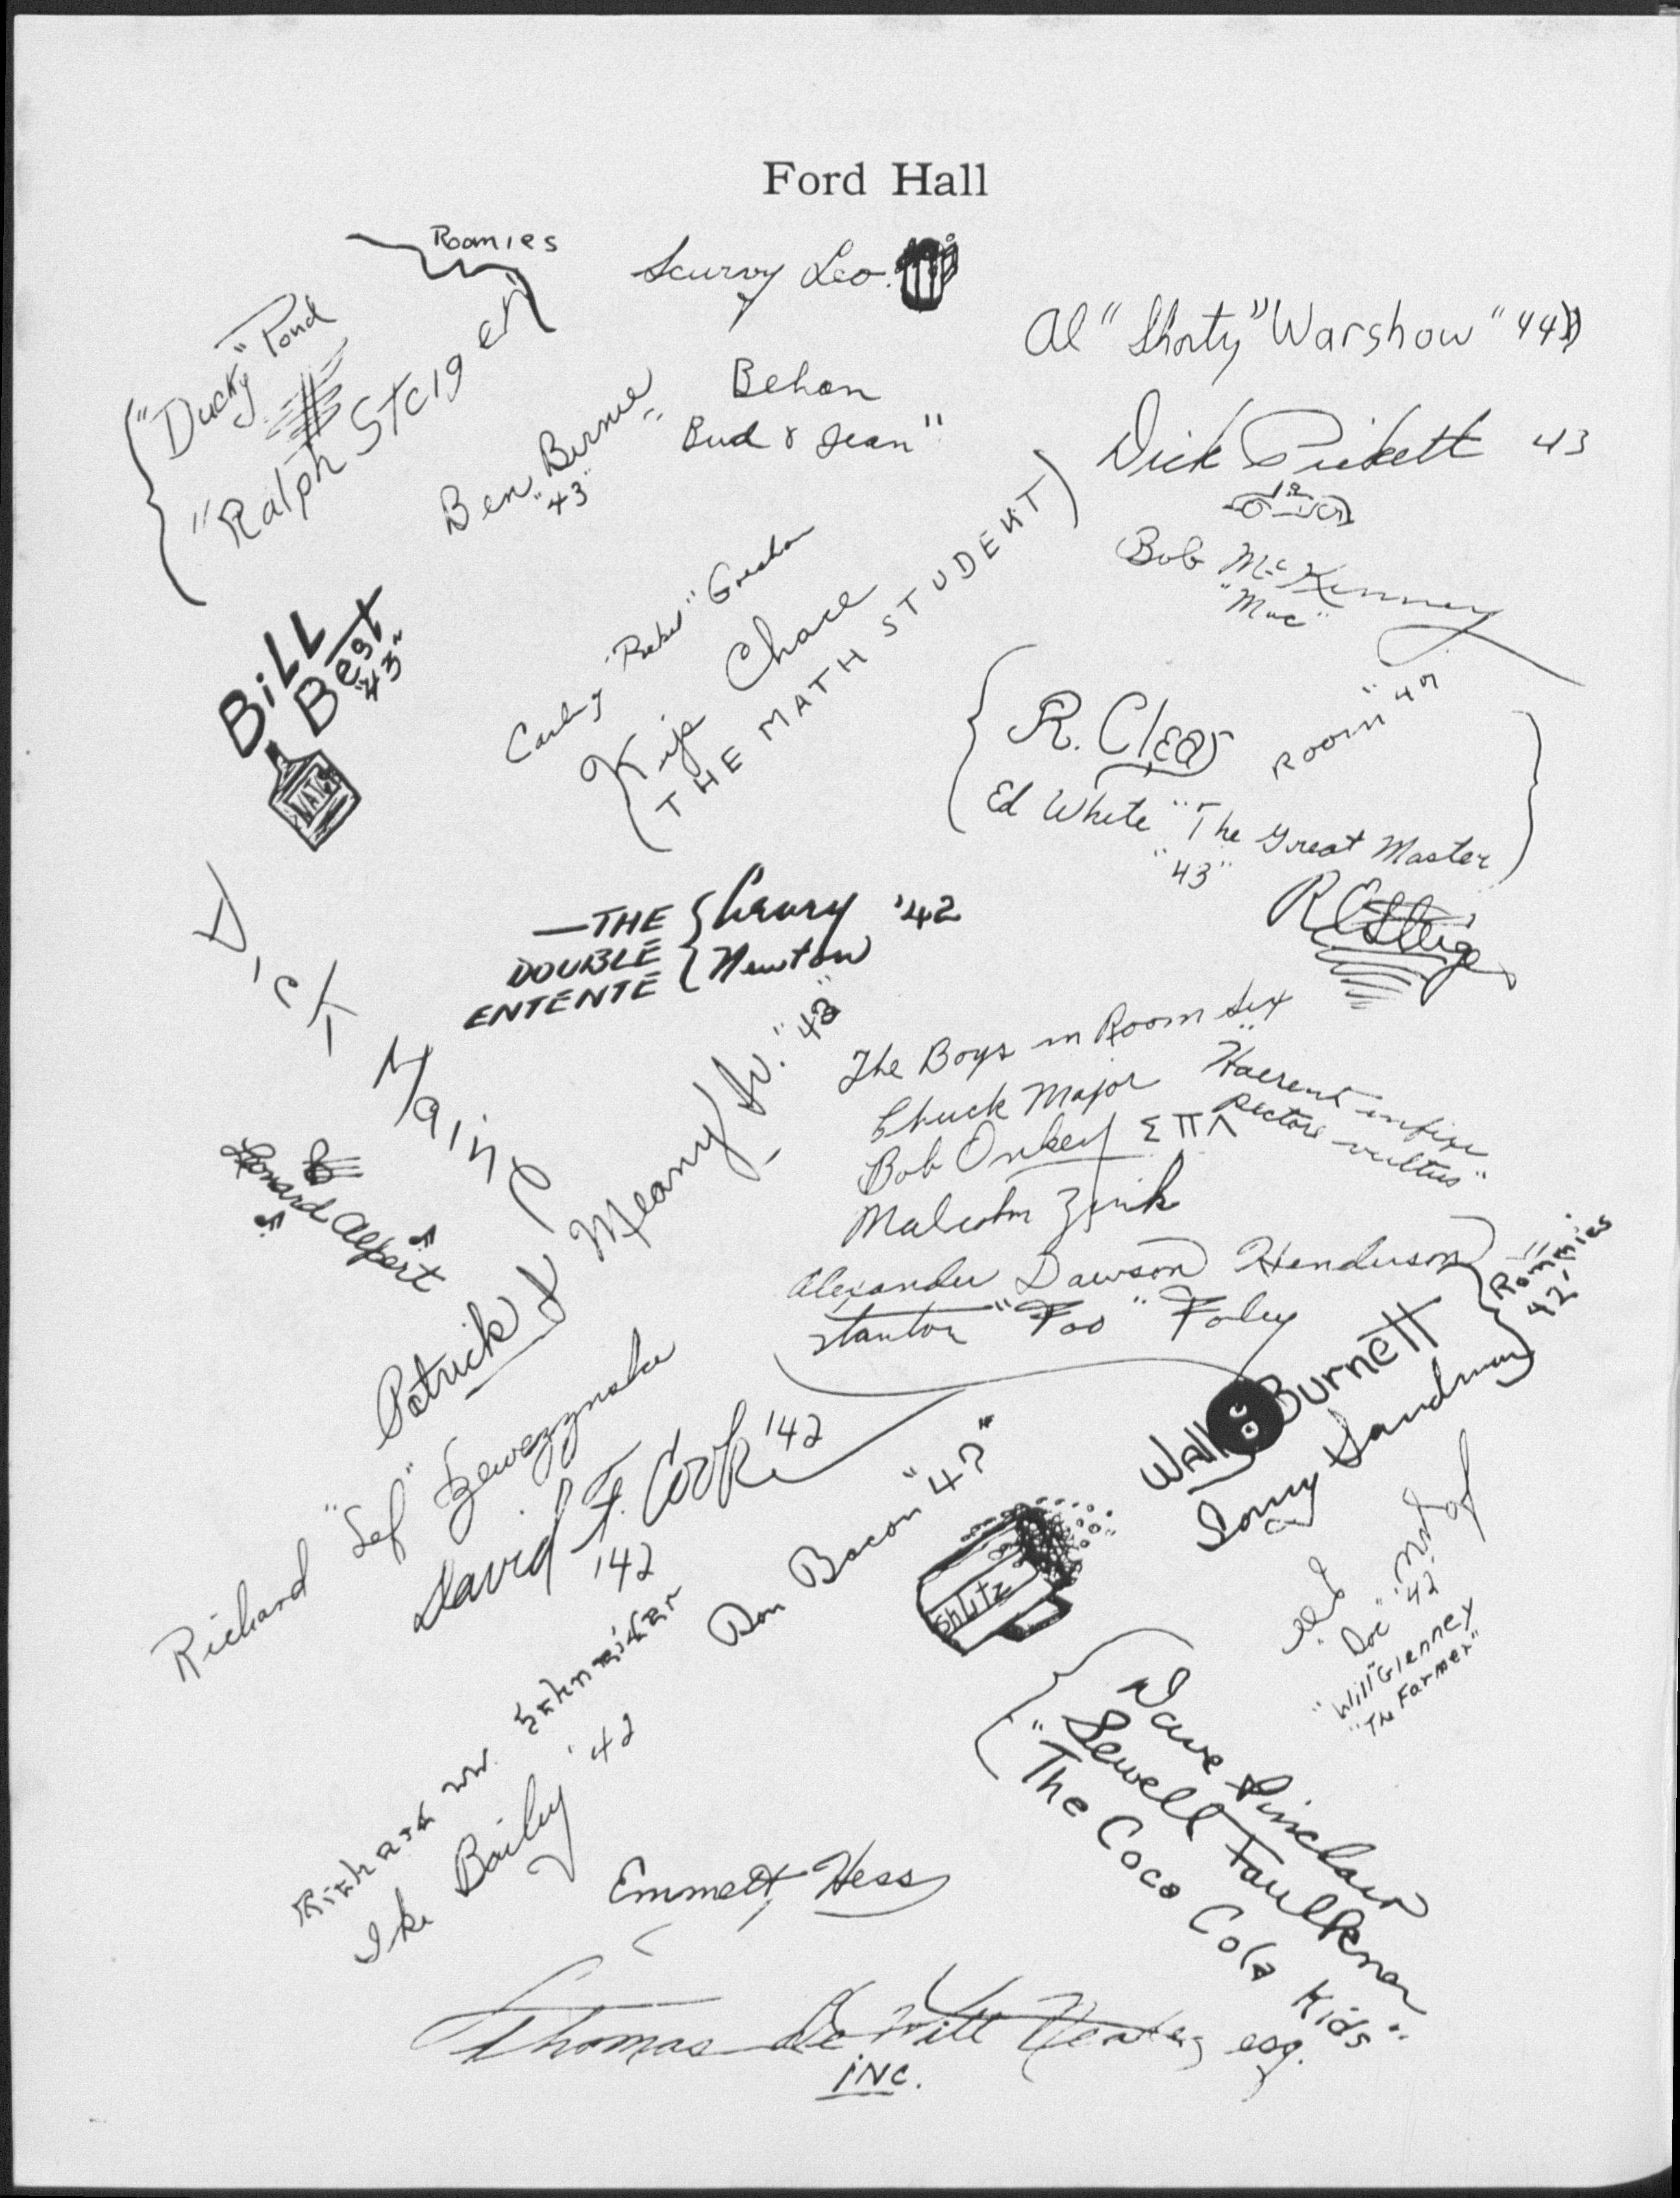 Ford Hall
Roomies
Scurvy Leo.
"Ducky" Pond
"Ralph Steiger"
Al "Shorty" Warshow "44"
Behan
Bud & Jean"
Ben Birne
"43"
Dick Pickett 43
Bob McKinney
"Mac"
Bill
Best
"43"
Kip Chace
THE MATH STUDENT)
R. Clear
Room "47
Ed White "The Great Master
"43"
—THE
DOUBLE
ENTENTE
Henry '42
Newton
Dick Maine
The Boys in Room Six
Chuck Major
Bob Onkey ΣΠΛ
"Haerent infixi
pectore vultus"
Malcolm Zink
Leonard Alpert
Patrick J Meany Jr. "43"
Alexander Dawson Henderson
Stanton "Foo" Foley
Roomies
42'
Wally 8 Burnett
Sandman
Richard "Sef"
David F. Cook '42
'42
Don Bacon "42"
Shlitz
"Doc" '42
"Will" Glenney
"The Farmer"
Richard W. Schneider
Ike Bailey '42
Dave Sinclair
Sewell Faulkner
"The Coca Cola Kids"
Emmett Hess
Thomas De Witt esq.
inc.